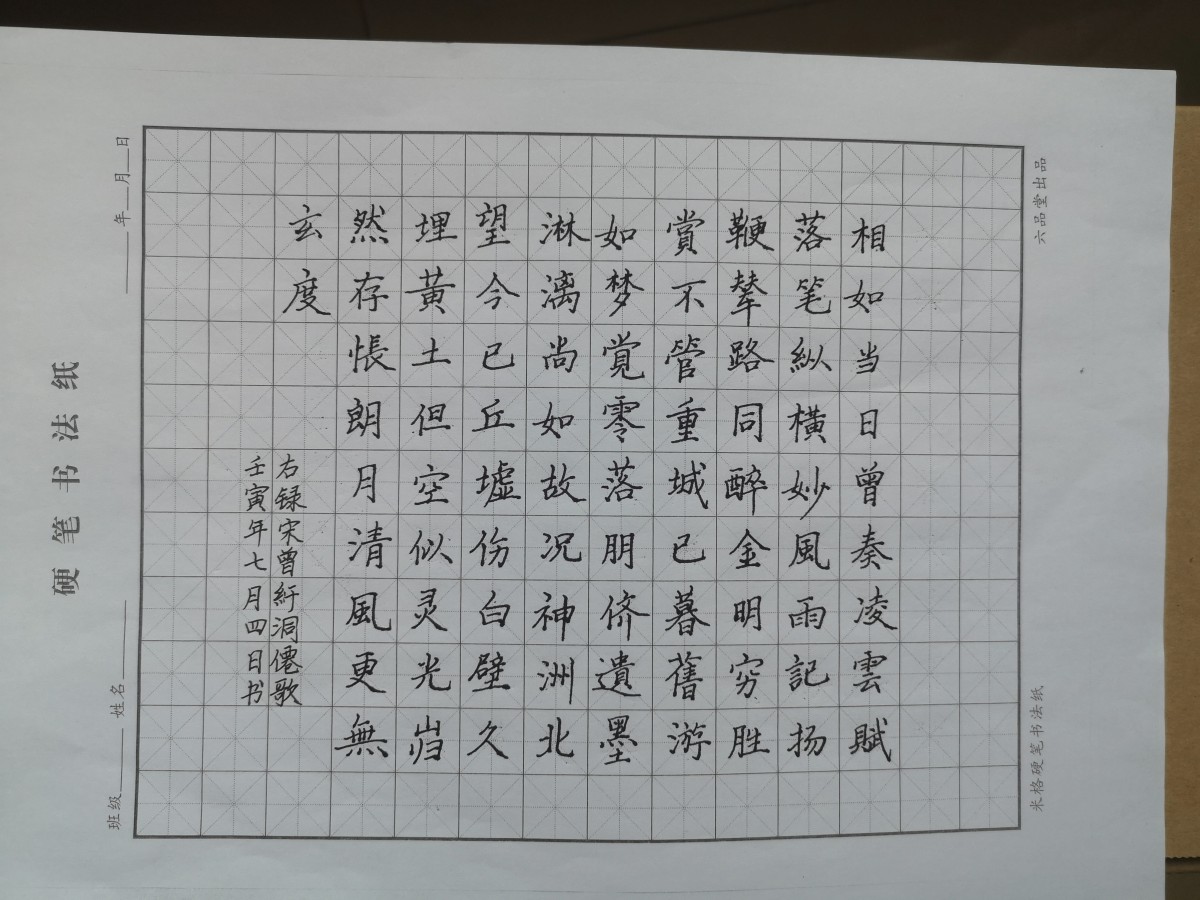 硬笔书法纸
班级 姓名 年 月 日
相如当日曾奏凌雲賦
落笔纵横妙風雨記扬
鞭辇路同醉金明穷胜
賞不管重城已暮舊游
如梦觉零落朋侪遺墨
淋漓尚如故况神洲北
望今已丘墟伤白壁久
埋黄土但空似灵光岿
然存怅朗月清風更無
玄度
右録宋曾紆洞僊歌
壬寅年七月四日书
六品堂出品
米格硬笔书法纸